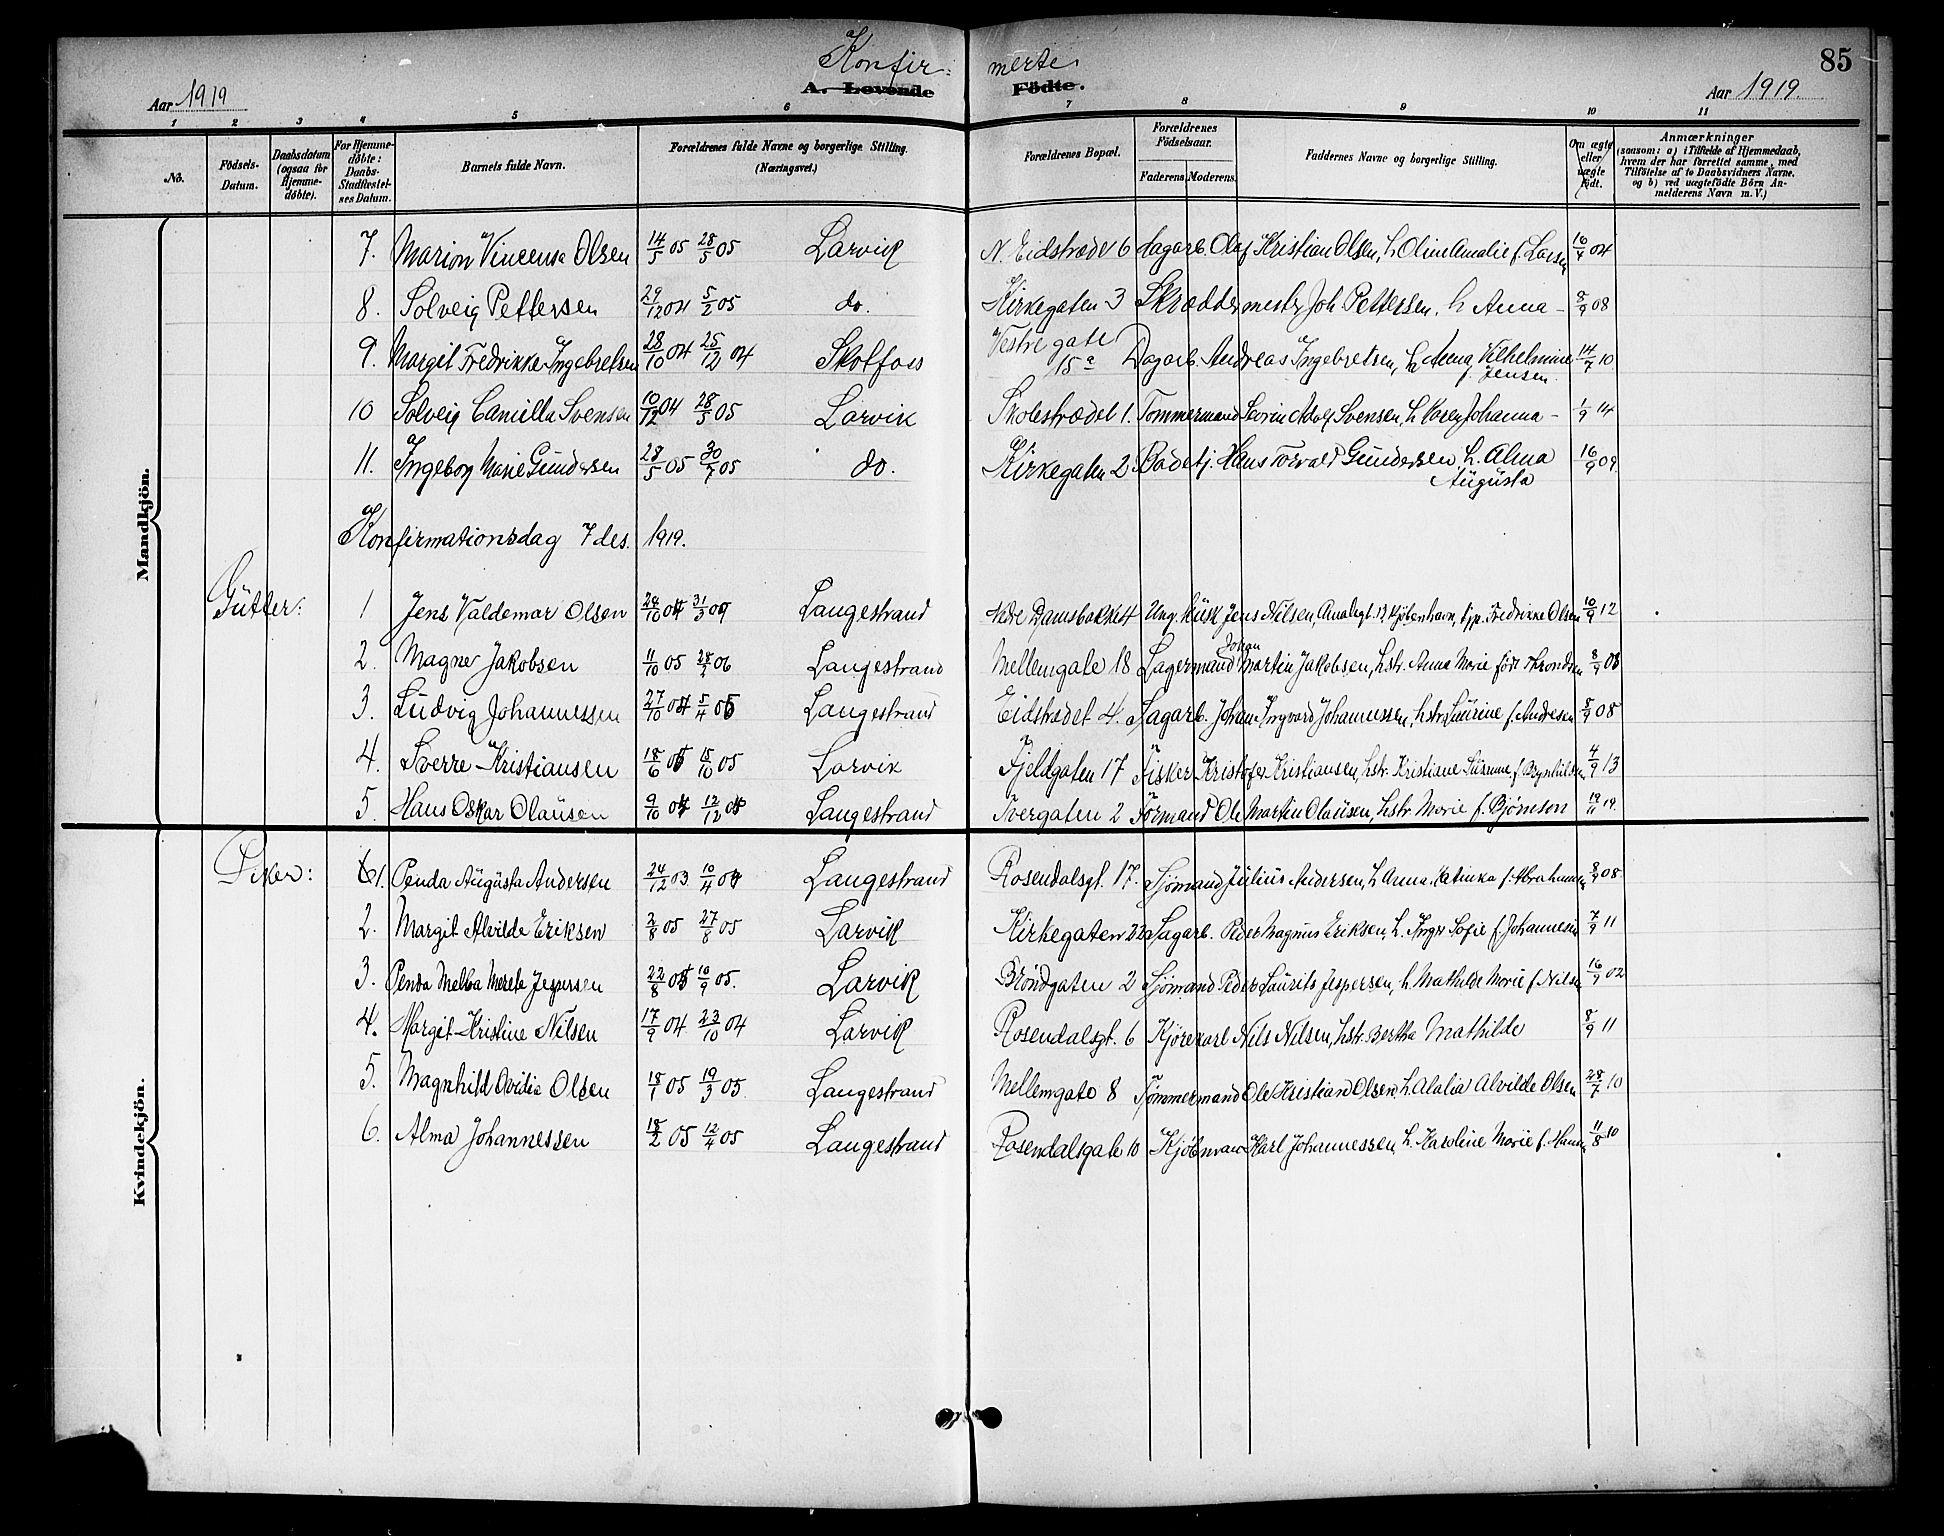 Konfir= merte. 85
Aar 1919 A. Levende Födte. Aar 1919.
1 2 3 4 5 6 7 8 9 10 11
No. Födsels-Datum. Daabsdatum (ogsaa for Hjemmedöbte). For Hjemmedöbte: Daabs-Stadfæstelses Datum. Barnets fulde Navn. Forældrenes fulde Navne og borgerlige Stilling. (Næringsvei.) Forældrenes Bopæl. Forældrenes Födselsaar. Faderens. Moderens. Faddernes Navne og borgerlige Stilling. Om ægte eller uægte födt. Anmærkninger (saasom: a) i Tilfælde af Hjemmedaab, hvem der har forrettet samme, med Tilföielse af to Daabsvidners Navne, og b) ved uægtefödte Börn Anmelderens Navn m.V.)
Mandkjön.
7. Marion Vincensa Olsen 14/5 05 28/5 05 Larvik N. Eidstræde 6 Sagarb. Olaf Kristian Olsen, h Oline Amalie f. Larsen 16/4 04
8. Solveig Pettersen 29/12 04 5/2 05 do. Kirkegaten 3 Skræddermester Joh. Pettersen, h Anna – 8/9 08
9. Margit Fredrikke Ingebretsen 28/10 04 25/12 04 Skotfoss Vestre gate 15a Dagarb. Andreas Ingebretsen, h Anna Vilhelmine f. Jensen. 14/7 10
10 Solveig Camilla Svensen 10/12 04 28/5 05 Larvik Skolestrædet 1. Tommermand Sorin Adolf Svensen, h Karen Johanna – 1/9 14
11. Ingeborg Marie Gundersen 28/5 05 30/7 05 do. Kirkegaten 2 Badetj. Hans Torvald Gundersen, h. Alma Augusta 16/9 09
Konfirmationsdag 7 des. 1919.
Gutter: 1 Jens Valdemar Olsen 24/10 04 31/3 09 Langestrand Nedre Damsbakke 4 Ung. Musk Jens Nilsen, København, Fredrikke Olsen 10/9 12
2. Magne Jakobsen 11/10 05 06 Langestrand Mellemgate 18 Lagermand Johan Martin Jakobsen, hstr. Anna Marie född 8/9 08
3. Ludvig Johannessen 27/10 04 5/4 05 Langestrand Eidstrædet 4. Sagarb. Johan Ingvard Johannessen, hstr. Laurine f. Andresen 8/9 08
4. Sverre Kristiansen 18/6 05 15/10 05 Larvik Fjeldgaten 17 Fisker Kristofer Kristiansen, hstr. Kristiane Susanne f. Brynhildsen 4/9 13
5. Hans Oskar Olausen 9/10 04 12/12 04 Langestrand Tvergaten 2 Formand Ole Martin Olausen, hstr. Marie f. Björnson 19/11 19.
Kvindekjön.
Piker: 1. Penda Augusta Andersen 24/12 03 10/4 04 Langestrand Rosendalsgt. 17. Sjömand Julius Andersen, h Anna Katinka f. Abrahamsen 8/9 08
2. Margit Alvilde Eriksen 2/8 05 27/8 05 Larvik Kirkegaten 22 Sagarb. Peder Magnus Eriksen, h. Inger Sofie f. Johannesen 7/9 11
3. Penda Melba Merete Jespersen 22/8 05 10/9 05. Larvik Bröndgaten 2 Sjömand Peder Laurits Jespersen, h Mathilde Marie f. Nilsen 16/9 02
4. Margit Kristine Nilsen 17/9 04 23/10 04 Larvik Rosendalsgt. 6 Kjörekarl Nils Nilsen, hstr. Bertha Mathilde 8/9 11
5. Magnhild Ovidia Olsen 18/1 05 19/3 05 Langestrand Mellemgate 8 Tömmermand Ole Kristian Olsen, h. Alalia Alvilde Olsen 28/7 10
6. Alma Johannessen 18/2 05 12/4 05 Langestrand Rosendalsgate 10 Kjöbmand Karl Johannessen, h. Karoline Marie f. Hansen 11/8 10